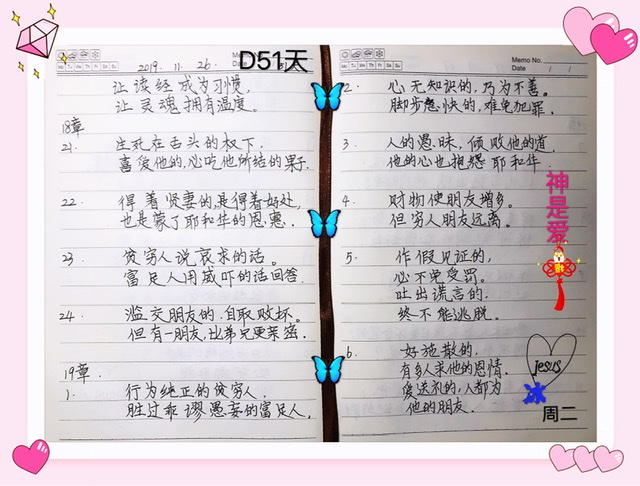 D51天
2019. 11. 26
Memo No.
Date
Mo Tu We Th Fr Sa Su
让读经成为习惯,
让灵魂拥有温度。
18章
21. 生死在舌头的权下,
喜爱他的,必吃他所结的果子.
22. 得着贤妻的,是得着好处,
也是蒙了耶和华的恩惠.
23. 贫穷人说哀求的话。
富足人用威吓的话回答.
24. 滥交朋友的.自取败坏.
但有一朋友,比弟兄更亲密.
19章.
1. 行为纯正的贫穷人.
胜过乖谬愚妄的富足人,
Mo Tu We Th Fr Sa Su
Memo No.
Date / /
2. 心无知识的,乃为不善。
脚步急快的,难免犯罪.
3. 人的愚昧,倾败他的道.
他的心也抱怨耶和华.
4. 财物使朋友增多。
但穷人朋友远离。
5. 作假见证的,
必不免受罚。
吐出谎言的.
终不能逃脱。
6. 好施散的,
有多人求他的恩情.
爱送礼的,人都为
他的朋友.
神是爱
Jesus
冰
周二